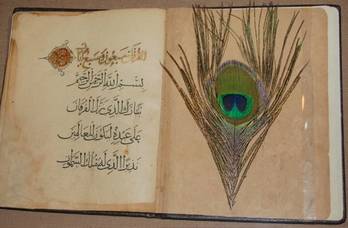 الفرقان سبعون وسبع آيات
بسم الله الرحمن الرحيم
تبارك الذي نزل الفرقان
على عبده ليكون للعالمين
نذيرا الذي له ملك السموات